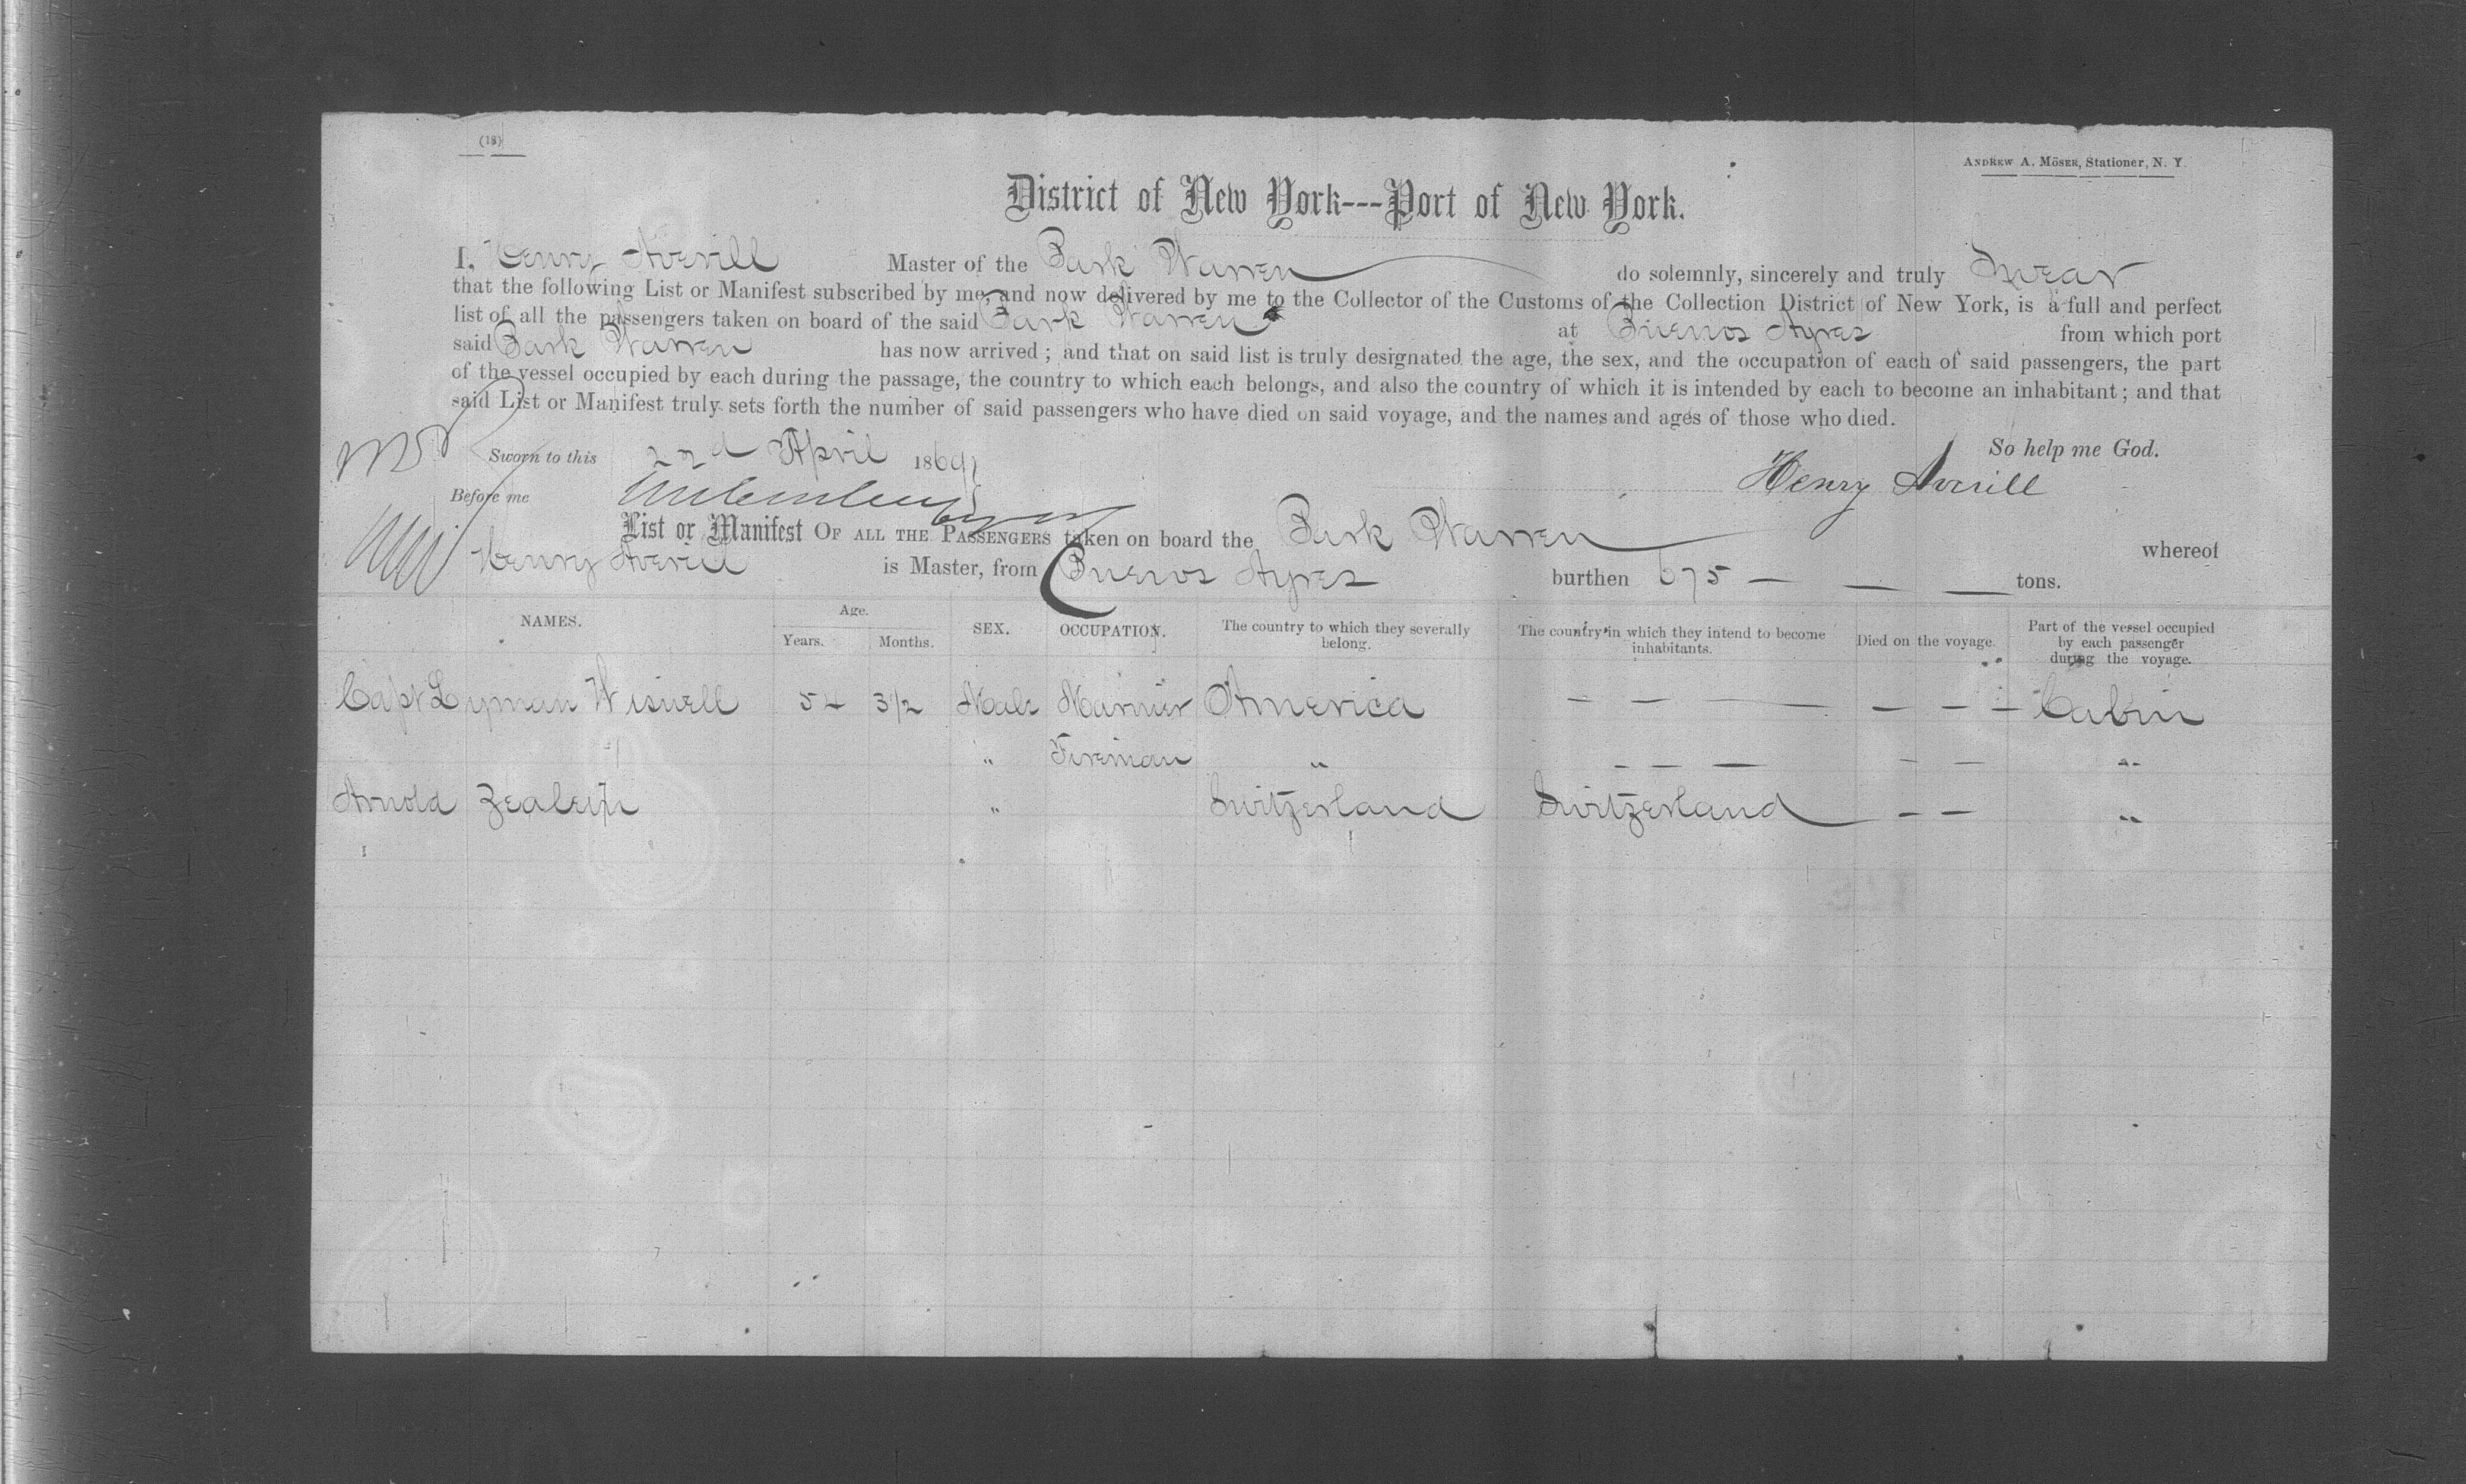 (18)
ANDREW A. MÖSER, Stationer, N. Y.
District of New York---Port of New York.
I, Henry Averill Master of the Bark Warren do solemnly, sincerely and truly Swear
that the following List or Manifest subscribed by me, and now delivered by me to the Collector of the Customs of the Collection District of New York, is a full and perfect
list of all the passengers taken on board of the said Bark Warren at Buenos Ayres from which port
said Bark Warren has now arrived; and that on said list is truly designated the age, the sex, and the occupation of each of said passengers, the part
of the vessel occupied by each during the passage, the country to which each belongs, and also the country of which it is intended by each to become an inhabitant; and that
said List or Manifest truly sets forth the number of said passengers who have died on said voyage, and the names and ages of those who died.
So help me God.
Sworn to this 22d April 1869
Henry Averill
Before me
List or Manifest OF ALL THE PASSENGERS taken on board the Bark Warren whereof
Henry Averill is Master, from Buenos Ayres burthen 675 — — — tons.
NAMES. Age. Years. Months. SEX. OCCUPATION. The country to which they severally belong. The country in which they intend to become inhabitants. Died on the voyage. Part of the vessel occupied by each passenger during the voyage.
Capt Lyman Wiswell 54 3/2 Male Mariner America — — — — — — — Cabin
" Fireman " — — — — — "
Arnold " Switzerland Switzerland — — "